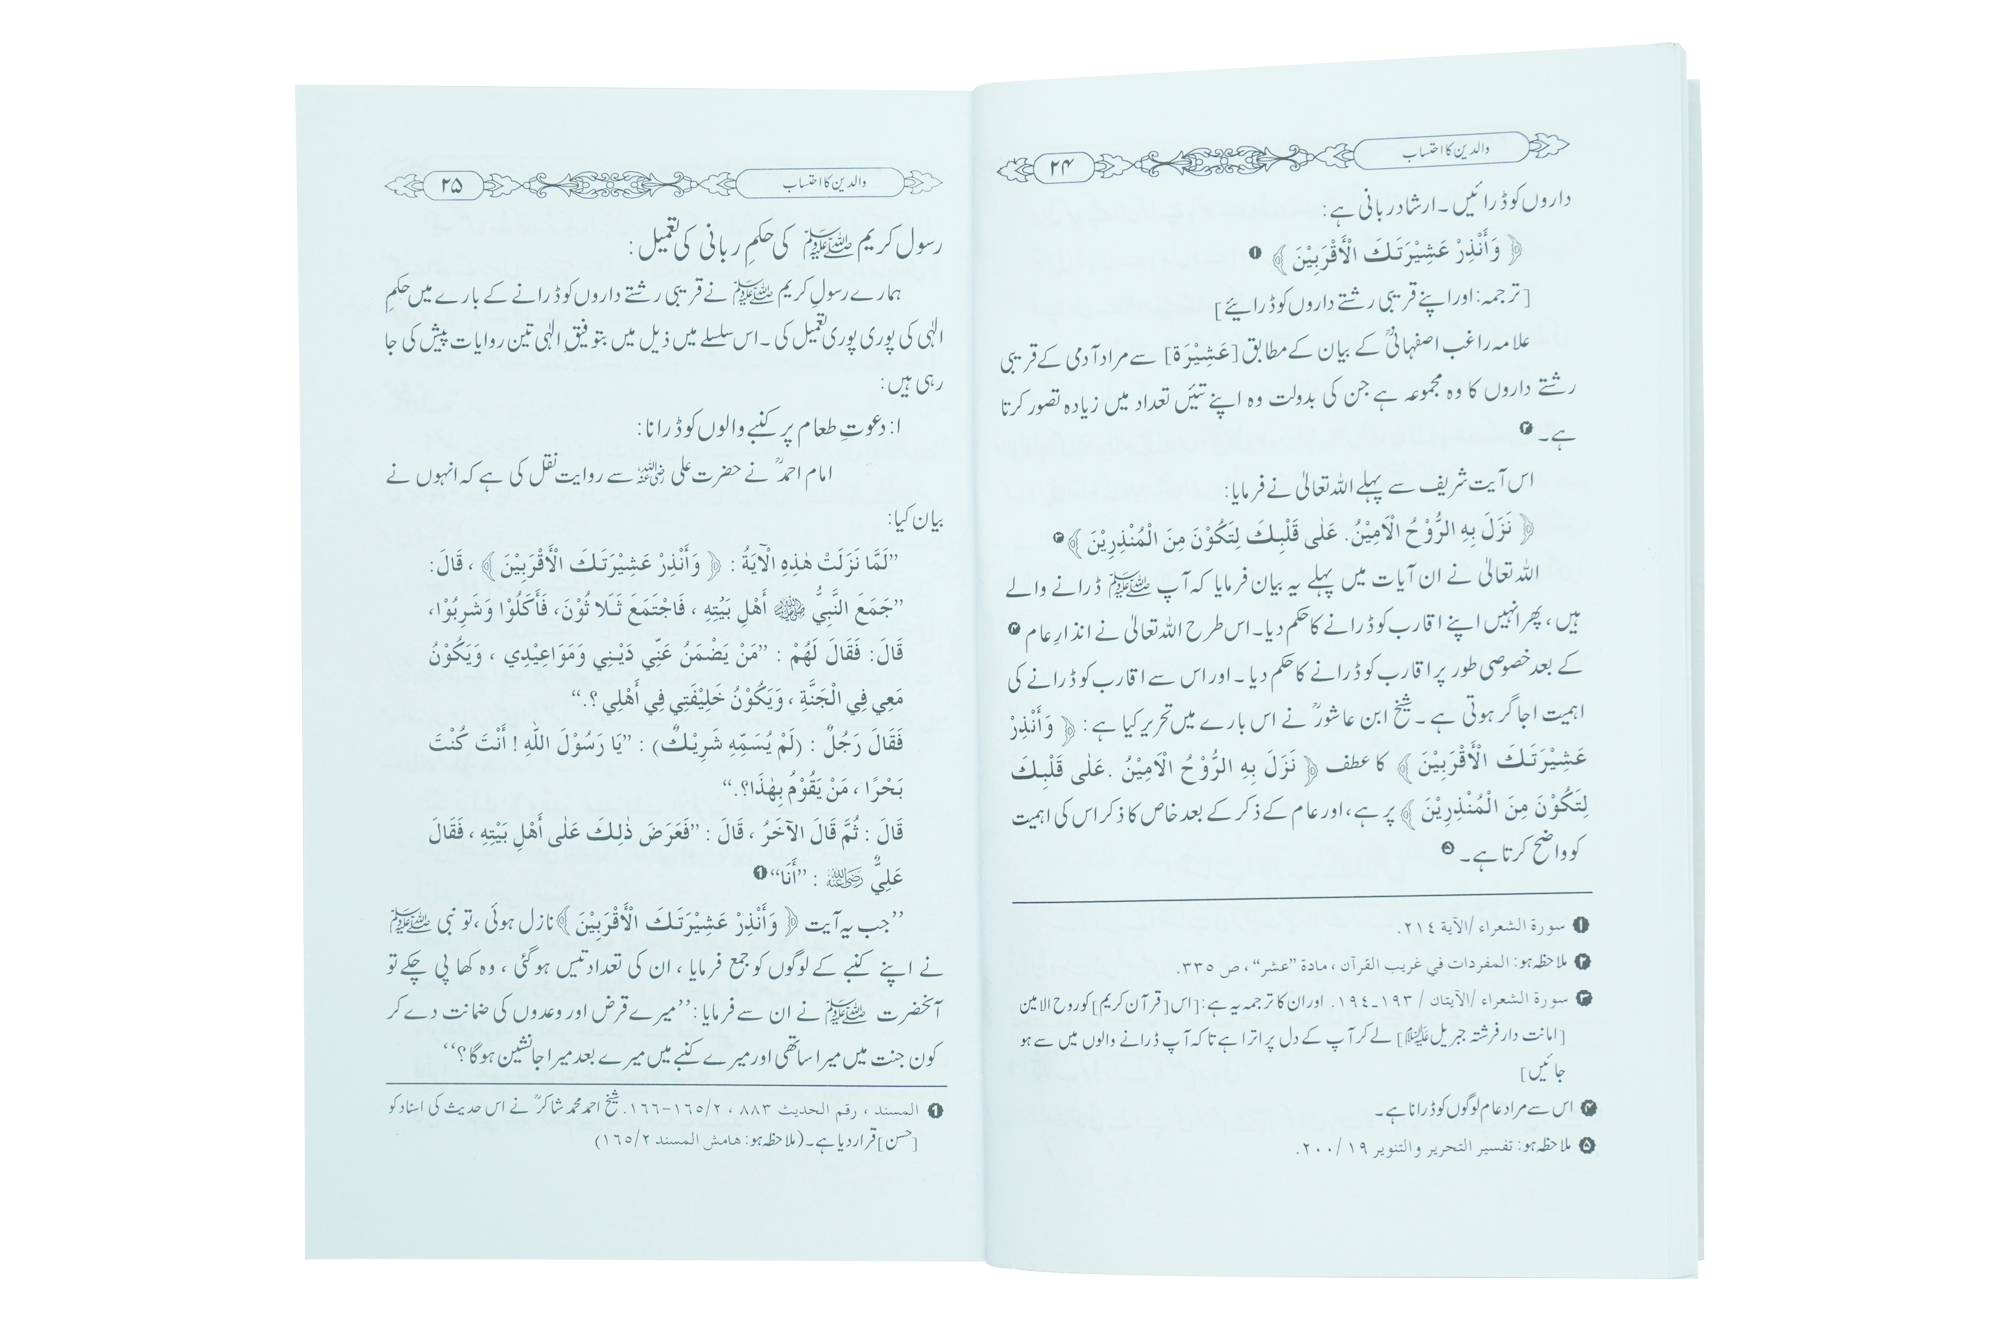 والدین کا احتساب
۲۴
داروں کو ڈرائیں۔ ارشاد ربانی ہے:
﴿ وَأَنْذِرْ عَشِيْرَتَكَ الْأَقْرَبِيْنَ ﴾ ❶
[ترجمہ: اور اپنے قریبی رشتے داروں کو ڈرائیے]
علامہ راغب اصفہانیؒ کے بیان کے مطابق [عَشِيْرَة] سے مراد آدمی کے قریبی
رشتے داروں کا وہ مجموعہ ہے جن کی بدولت وہ اپنے تئیں تعداد میں زیادہ تصور کرتا
ہے۔ ❷
اس آیت شریف سے پہلے اللہ تعالیٰ نے فرمایا:
﴿ نَزَلَ بِهِ الرُّوْحُ الْاَمِيْنُ. عَلٰى قَلْبِكَ لِتَكُوْنَ مِنَ الْمُنْذِرِيْنَ ﴾ ❸
اللہ تعالیٰ نے ان آیات میں پہلے یہ بیان فرمایا کہ آپ ﷺ ڈرانے والے
ہیں، پھر انہیں اپنے اقارب کو ڈرانے کا حکم دیا۔ اس طرح اللہ تعالیٰ نے انذارِ عام ❹
کے بعد خصوصی طور پر اقارب کو ڈرانے کا حکم دیا۔ اور اس سے اقارب کو ڈرانے کی
اہمیت اجاگر ہوتی ہے۔ شیخ ابن عاشورؒ نے اس بارے میں تحریر کیا ہے: ﴿ وَأَنْذِرْ
عَشِيْرَتَكَ الْأَقْرَبِيْنَ ﴾ کا عطف ﴿ نَزَلَ بِهِ الرُّوْحُ الْاَمِيْنُ . عَلٰى قَلْبِكَ
لِتَكُوْنَ مِنَ الْمُنْذِرِيْنَ ﴾ پر ہے، اور عام کے ذکر کے بعد خاص کا ذکر اس کی اہمیت
کو واضح کرتا ہے۔ ❺
❶ سورة الشعراء /الآية ٢١٤.
❷ ملاحظہ ہو: المفردات في غريب القرآن ، مادة ”عشر“ ، ص ٣٣٥.
❸ سورة الشعراء /الآيتان / ١٩٣ـ١٩٤. اور ان کا ترجمہ یہ ہے: [اس [قرآن کریم] کو روح الامین
[امانت دار فرشتہ جبریل علیہ السلام] لے کر آپ کے دل پر اترا ہے تاکہ آپ ڈرانے والوں میں سے ہو
جائیں]
❹ اس سے مراد عام لوگوں کو ڈرانا ہے۔
❺ ملاحظہ ہو: تفسير التحرير والتنوير ١٩ /٢٠٠.
والدین کا احتساب
۲۵
رسول کریم ﷺ کی حکمِ ربانی کی تعمیل:
ہمارے رسولِ کریم ﷺ نے قریبی رشتے داروں کو ڈرانے کے بارے میں حکمِ
الٰہی کی پوری پوری تعمیل کی۔ اس سلسلے میں ذیل میں بتوفیقِ الٰہی تین روایات پیش کی جا
رہی ہیں:
ا: دعوتِ طعام پر کنبے والوں کو ڈرانا:
امام احمدؒ نے حضرت علی رضی اللہ عنہ سے روایت نقل کی ہے کہ انہوں نے
بیان کیا:
”لَمَّا نَزَلَتْ هٰذِهِ الْآيَةُ : ﴿ وَأَنْذِرْ عَشِيْرَتَكَ الْأَقْرَبِيْنَ ﴾ ، قَالَ:
”جَمَعَ النَّبِيُّ ﷺ أَهْلِ بَيْتِهِ ، فَاجْتَمَعَ ثَلَاثُوْنَ، فَأَكَلُوْا وَشَرِبُوْا،
قَالَ: فَقَالَ لَهُمْ : ”مَنْ يَضْمَنُ عَنِّي دَيْنِي وَمَوَاعِيْدِي ، وَيَكُوْنُ
مَعِي فِي الْجَنَّةِ ، وَيَكُوْنُ خَلِيْفَتِي فِي أَهْلِي ؟.“
فَقَالَ رَجُلٌ : (لَمْ يُسَمِّهِ شَرِيْكٌ) : ”يَا رَسُوْلَ اللهِ ! أَنْتَ كُنْتَ
بَحْرًا ، مَنْ يَقُوْمُ بِهٰذَا؟.“
قَالَ : ثُمَّ قَالَ الآخَرُ ، قَالَ : ”فَعَرَضَ ذٰلِكَ عَلٰى أَهْلِ بَيْتِهِ ، فَقَالَ
عَلِيٌّ رضی اللہ عنہ : ”أَنَا“ ❶
’’جب یہ آیت ﴿ وَأَنْذِرْ عَشِيْرَتَكَ الْأَقْرَبِيْنَ ﴾ نازل ہوئی، تو نبی ﷺ
نے اپنے کنبے کے لوگوں کو جمع فرمایا، ان کی تعداد تیس ہوگئی، وہ کھا پی چکے تو
آنحضرت ﷺ نے ان سے فرمایا: ’’میرے قرض اور وعدوں کی ضمانت دے کر
کون جنت میں میرا ساتھی اور میرے کنبے میں میرے بعد میرا جانشین ہوگا؟‘‘
❶ المسند ، رقم الحديث ٨٨٣ ، ١٦٥/٢-١٦٦. شیخ احمد محمد شاکرؒ نے اس حدیث کی اسناد کو
[حسن] قرار دیا ہے۔ (ملاحظہ ہو: هامش المسند ١٦٥/٢)